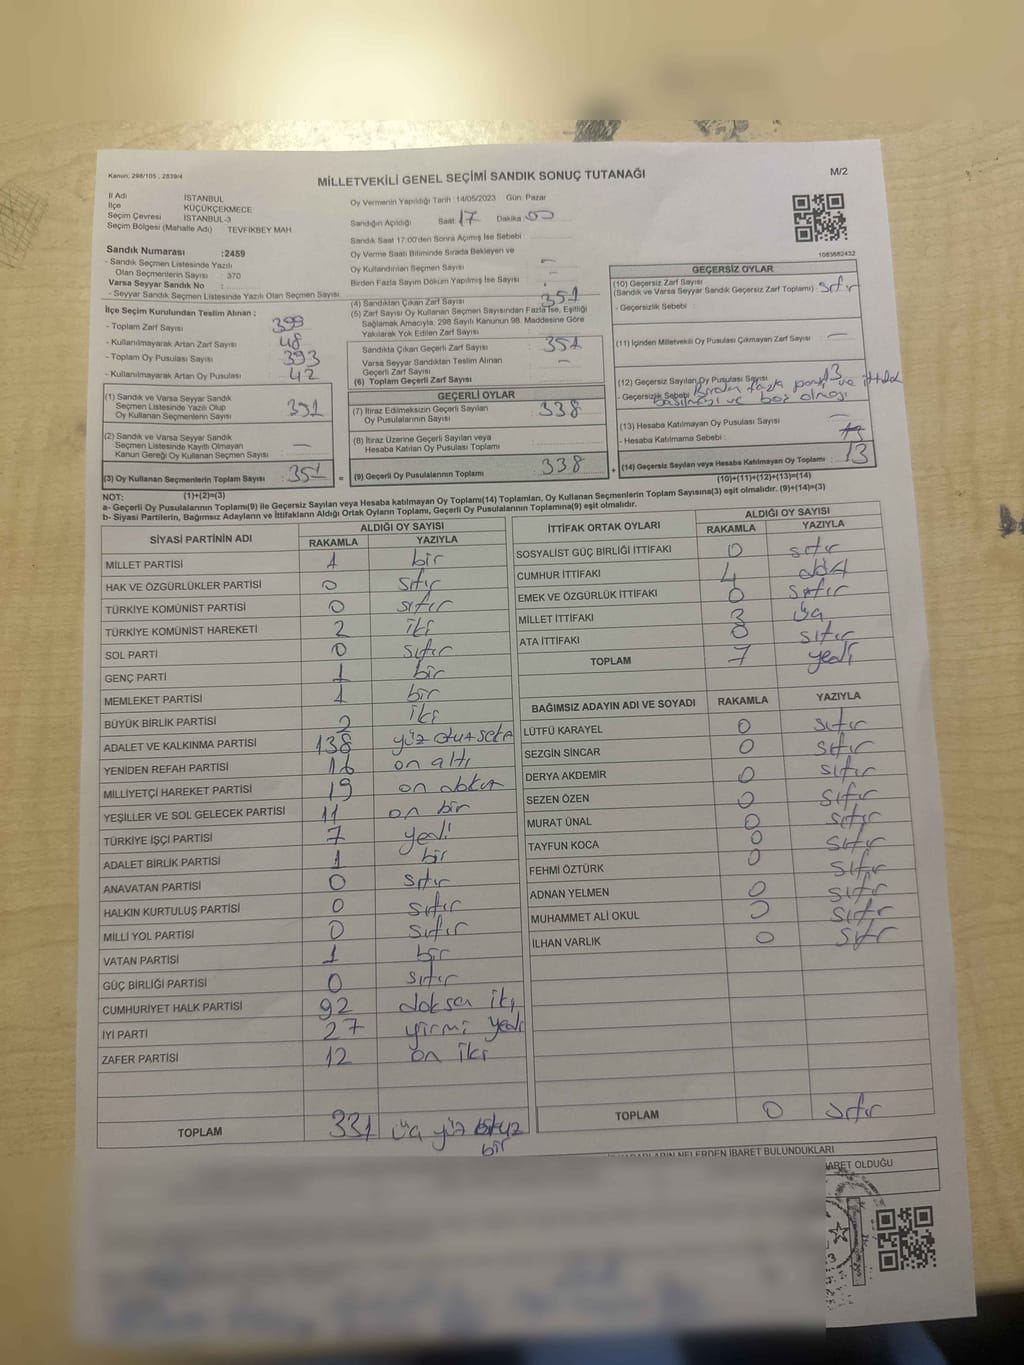 Kanun; 298/105 , 2839/4
MİLLETVEKİLİ GENEL SEÇİMİ SANDIK SONUÇ TUTANAĞI
M/2
İl Adı İSTANBUL
İlçe KÜÇÜKÇEKMECE
Seçim Çevresi İSTANBUL-3
Seçim Bölgesi (Mahalle Adı) TEVFİKBEY MAH.
Sandık Numarası :2459
- Sandık Seçmen Listesinde Yazılı
Olan Seçmenlerin Sayısı : 370
Varsa Seyyar Sandık No :
- Seyyar Sandık Seçmen Listesinde Yazılı Olan Seçmen Sayısı:
Oy Vermenin Yapıldığı Tarih :14/05/2023 Gün: Pazar
Sandığın Açıldığı Saat: 17 Dakika 00
Sandık Saat 17:00'den Sonra Açılmış İse Sebebi :
Oy Verme Saati Bitiminde Sırada Bekleyen ve
Oy Kullandırılan Seçmen Sayısı : —
Birden Fazla Sayım Döküm Yapılmış İse Sayısı : -
1083682432
İlçe Seçim Kurulundan Teslim Alınan ;
- Toplam Zarf Sayısı : 399
- Kullanılmayarak Artan Zarf Sayısı : 48
- Toplam Oy Pusulası Sayısı : 393
- Kullanılmayarak Artan Oy Pusulası : 42
(1) Sandık ve Varsa Seyyar Sandık
Seçmen Listesinde Yazılı Olup
Oy Kullanan Seçmenlerin Sayısı : 351
(2) Sandık ve Varsa Seyyar Sandık
Seçmen Listesinde Kayıtlı Olmayan
Kanun Gereği Oy Kullanan Seçmen Sayısı : —
(3) Oy Kullanan Seçmenlerin Toplam Sayısı : 351
(1)+(2)=(3)
(4) Sandıktan Çıkan Zarf Sayısı : 351
(5) Zarf Sayısı Oy Kullanan Seçmen Sayısından Fazla İse, Eşitliği
Sağlamak Amacıyla, 298 Sayılı Kanunun 98. Maddesine Göre
Yakılarak Yok Edilen Zarf Sayısı :
Sandıkta Çıkan Geçerli Zarf Sayısı : 351
Varsa Seyyar Sandıktan Teslim Alınan
Geçerli Zarf Sayısı : —
(6) Toplam Geçerli Zarf Sayısı
GEÇERLİ OYLAR
(7) İtiraz Edilmeksizin Geçerli Sayılan
Oy Pusulalarının Sayısı : 338
(8) İtiraz Üzerine Geçerli Sayılan veya
Hesaba Katılan Oy Pusulası Toplamı :
= (9) Geçerli Oy Pusulalarının Toplamı : 338 +
GEÇERSİZ OYLAR
(10) Geçersiz Zarf Sayısı
(Sandık ve Varsa Seyyar Sandık Geçersiz Zarf Toplamı) : sıfır
- Geçersizlik Sebebi :
(11) İçinden Milletvekili Oy Pusulası Çıkmayan Zarf Sayısı : —
(12) Geçersiz Sayılan Oy Pusulası Sayısı : 13
- Geçersizlik Sebebi : Birden fazla parti ve ittifak
basılması ve boş olması
(13) Hesaba Katılmayan Oy Pusulası Sayısı : —
- Hesaba Katılmama Sebebi :
(14) Geçersiz Sayılan veya Hesaba Katılmayan Oy Toplamı : 13
(10)+(11)+(12)+(13)=(14)
NOT:
a- Geçerli Oy Pusulalarının Toplamı(9) ile Geçersiz Sayılan veya Hesaba katılmayan Oy Toplamı(14) Toplamları, Oy Kullanan Seçmenlerin Toplam Sayısına(3) eşit olmalıdır. (9)+(14)=(3)
b- Siyasi Partilerin, Bağımsız Adayların ve İttifakların Aldığı Ortak Oyların Toplamı, Geçerli Oy Pusulalarının Toplamına(9) eşit olmalıdır.
SİYASİ PARTİNİN ADI ALDIĞI OY SAYISI
RAKAMLA YAZIYLA
MİLLET PARTİSİ 1 bir
HAK VE ÖZGÜRLÜKLER PARTİSİ 0 sıfır
TÜRKİYE KOMÜNİST PARTİSİ 0 sıfır
TÜRKİYE KOMÜNİST HAREKETİ 2 iki
SOL PARTİ 0 sıfır
GENÇ PARTİ 1 bir
MEMLEKET PARTİSİ 1 bir
BÜYÜK BİRLİK PARTİSİ 2 iki
ADALET VE KALKINMA PARTİSİ 138 yüz otuz sekiz
YENİDEN REFAH PARTİSİ 16 on altı
MİLLİYETÇİ HAREKET PARTİSİ 19 on dokuz
YEŞİLLER VE SOL GELECEK PARTİSİ 11 on bir
TÜRKİYE İŞÇİ PARTİSİ 7 yedi
ADALET BİRLİK PARTİSİ 1 bir
ANAVATAN PARTİSİ 0 sıfır
HALKIN KURTULUŞ PARTİSİ 0 sıfır
MİLLİ YOL PARTİSİ 0 sıfır
VATAN PARTİSİ 1 bir
GÜÇ BİRLİĞİ PARTİSİ 0 sıfır
CUMHURİYET HALK PARTİSİ 92 doksan iki
İYİ PARTİ 27 yirmi yedi
ZAFER PARTİSİ 12 on iki
TOPLAM 331 üç yüz otuz
bir
İTTİFAK ORTAK OYLARI ALDIĞI OY SAYISI
RAKAMLA YAZIYLA
SOSYALİST GÜÇ BİRLİĞİ İTTİFAKI 0 sıfır
CUMHUR İTTİFAKI 4 dört
EMEK VE ÖZGÜRLÜK İTTİFAKI 0 sıfır
MİLLET İTTİFAKI 3 üç
ATA İTTİFAKI 0 sıfır
TOPLAM 7 yedi
BAĞIMSIZ ADAYIN ADI VE SOYADI RAKAMLA YAZIYLA
LÜTFÜ KARAYEL 0 sıfır
SEZGİN SİNCAR 0 sıfır
DERYA AKDEMİR 0 sıfır
SEZEN ÖZEN 0 sıfır
MURAT ÜNAL 0 sıfır
TAYFUN KOCA 0 sıfır
FEHMİ ÖZTÜRK 0 sıfır
ADNAN YELMEN 0 sıfır
MUHAMMET ALİ OKUL 0 sıfır
İLHAN VARLIK 0 sıfır
TOPLAM 0 sıfır
NELERDEN İBARET BULUNDUKLARI
OLDUĞU